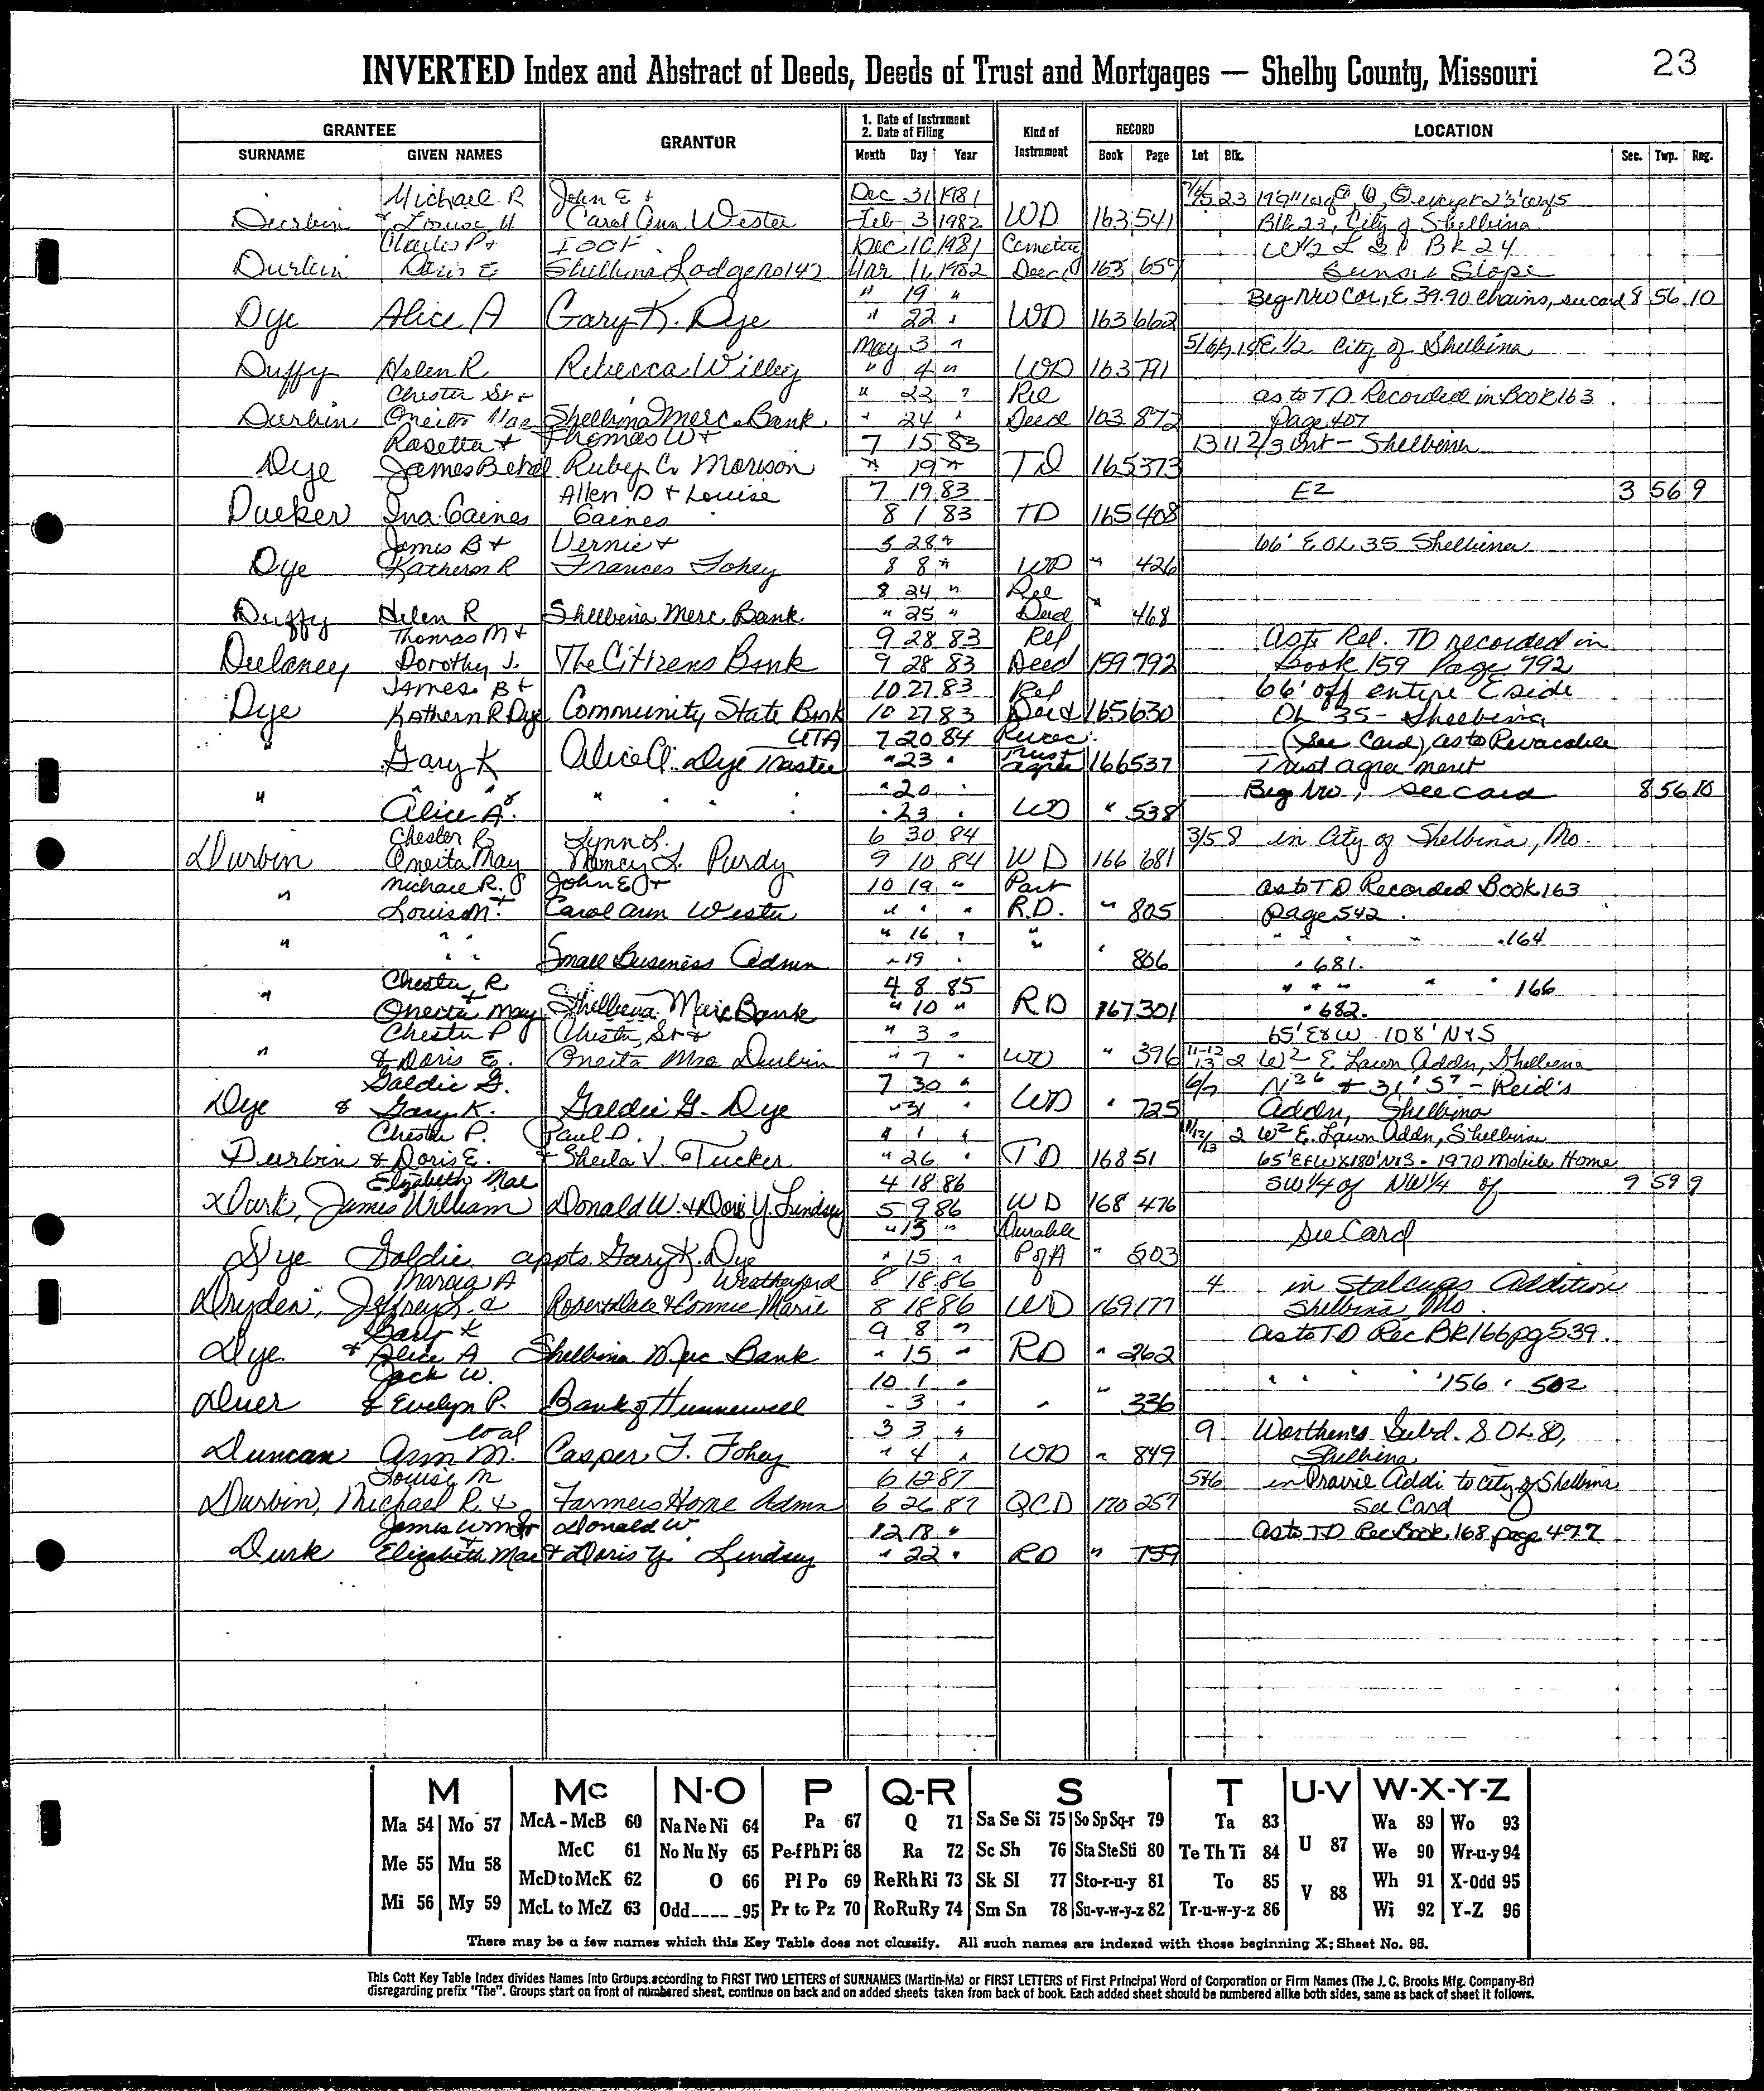 INVERTED Index and Abstract of Deeds, Deeds of Trust and Mortgages — Shelby County, Missouri 23
GRANTEE GRANTOR 1. Date of Instrument 2. Date of Filing Kind of Instrument RECORD LOCATION
SURNAME GIVEN NAMES Month Day Year Book Page Lot Blk. Sec. Twp. Rng.
Michael R John E & Dec 31 1981
Durbin & Louise M Carol Ann Wester Feb 3 1982 WD 163 541 Blk 23, City of Shelbina
Charles P & IOOF Dec 10 1981 Cemetery W 1/2 L Bk 24
Durbin Doris E Shelbina Lodge no 142 Mar 16 1982 Deed 163 659 Sunset Slope
" 19 " Beg NW Cor, E 39.90 Chains, see card 8 56 10
Dye Alice A Gary K. Dye " 22 " WD 163 662
May 3 " E 1/2 City of Shelbina
Duffy Helen R Rebecca Willey " 4 " WD 163 791
Chester Sr & " 23 " Rel as to T.D. Recorded in Book 163
Durbin Oneita Mae Shelbina Merc. Bank " 24 " Deed 163 872 Page 407
Rosetta & Thomas W & 7 15 83 13 11 2/3 Int - Shelbina
Dye James B etal Ruby C. Morison " 19 " TD 165 373
Allen D & Louise 7 19 83 E2 3 56 9
Dueker Ina Gaines Gaines 8 1 83 TD 165 408
James B & Vernie & 5 28 " 66' E OL 35 Shelbina
Dye Kathern R Frances Fohey 8 8 " WD " 426
8 24 " Rel
Duffy Helen R Shelbina Merc. Bank " 25 " Deed " 468
Thomas M & 9 28 83 Rel As to Rel. TD recorded in
Dulaney Dorothy J. The Citizens Bank 9 28 83 Deed 159 792 Book 159 Page 792
James B & 10 27 83 Rel 66' off entire E side
Dye Kathern R Dye Community State Bank 10 27 83 Deed 165 630 OL 35 - Shelbina
UTA 7 20 84 Revoc. (See Card) as to Revocable
" Gary K Alice A. Dye Trustee " 23 " Trust Agree 166 537 Trust agreement
" 20 " Beg NW, see card 8 56 10
" Alice A. & " " " " " 23 " WD " 538
Chester R Lynn L. 6 30 84 3/5 8 in City of Shelbina, Mo.
Durbin Oneita May Nancy L. Purdy 9 10 84 WD 166 681
Michael R. & John E & 10 19 " Part as to TD Recorded Book 163
" Louise M. Carol Ann Wester " " " R.D. " 805 Page 542.
" " " 16 " " " " " " 164
" " " Small Business Admin " 19 " " 806 " 681.
Chester R 4 8 85 " " " " " 166
" Oneita May Shelbina Merc Bank " 10 " RD 167 301 " 682.
Chester P Chester, Sr & " 3 " 65' E&W 108' N&S
" & Doris E. Oneita Mae Durbin " 7 " WD " 396 11-12 13 2 W2 E Lawn Addn, Shelbina
Goldie G. 7 30 " 6/7 N 26 & 31' S 7 - Reid's
Dye & Gary K. Goldie G. Dye " 31 " WD " 725 Addn, Shelbina
Chester P. Paul D. 11/12/13 2 W2 E. Lawn Addn, Shelbina
Durbin & Doris E. & Sheila V. Tucker " 26 " TD 168 51 65' E&W X 180' N&S - 1970 Mobile Home
Elizabeth Mae 4 18 86 SW 1/4 of NW 1/4 of 9 59 9
Durk, James William Donald W. & Doris Y. Lindsey 5 9 86 WD 168 476
" 13 " Durable See Card
Dye Goldie appts. Gary K. Dye " 15 " P of A " 503
Weatherford 8 18 86 4 in Stalcups Addition
Dryden, Jeffrey S. & Connie Marie 8 18 86 WD 169 177 Shelbina Mo.
Gary K 9 8 " as to TD Rec Bk 166 pg 539.
Dye & Alice A Shelbina Merc Bank " 15 " RD " 262
Jack W. 10 1 " " " " " 156 " 502
Duer & Evelyn P. Bank of Hunnewell " 3 " " " 336
etal 3 3 " 9 Worthens Subd. S OL 80,
Duncan Ann M. Casper F. Fohey " 4 " WD " 849 Shelbina
Louise M 6 12 87 5&6 in Prairie Addi to city of Shelbina
Durbin, Michael R. & Farmers Home Admn 6 26 87 QCD 170 257 See Card
James Wm Donald W. 12 18 " as to TD Rec Book 168 page 477
Durk Elizabeth Mae & Doris Y. Lindsey " 22 " RD " 759
M Mc N-O P Q-R S T U-V W-X-Y-Z
Ma 54 Mo 57 McA - McB 60 Na Ne Ni 64 Pa 67 Q 71 Sa Se Si 75 So Sp Sq-r 79 Ta 83 Wa 89 Wo 93
Me 55 Mu 58 McC 61 No Nu Ny 65 Pe-f Ph Pi 68 Ra 72 Sc Sh 76 Sta Ste Sti 80 Te Th Ti 84 U 87 We 90 Wr-u-y 94
McD to McK 62 O 66 Pl Po 69 Re Rh Ri 73 Sk Sl 77 Sto-r-u-y 81 To 85 V 88 Wh 91 X-Odd 95
Mi 56 My 59 McL to McZ 63 Odd 95 Pr to Pz 70 Ro Ru Ry 74 Sm Sn 78 Su-v-w-y-z 82 Tr-u-w-y-z 86 Wi 92 Y-Z 96
There may be a few names which this Key Table does not classify. All such names are indexed with those beginning X; Sheet No. 95.
This Cott Key Table Index divides Names Into Groups according to FIRST TWO LETTERS of SURNAMES (Martin-Ma) or FIRST LETTERS of First Principal Word of Corporation or Firm Names (The J. C. Brooks Mfg. Company-Br)
disregarding prefix "The". Groups start on front of numbered sheet, continue on back and on added sheets taken from back of book. Each added sheet should be numbered alike both sides, same as back of sheet it follows.